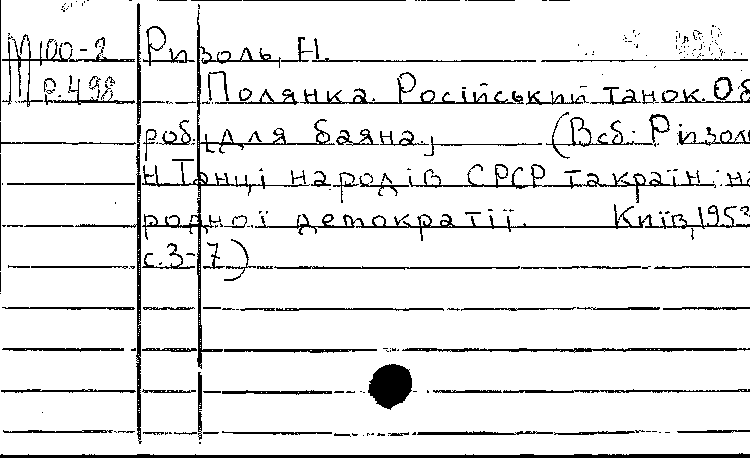 М 100-2 Ризоль, Н.
р.498 Полянка. Російський танок. Об
роб. [для баяна] (В сб: Різоль
Н. Танці народів СРСР та країн на
родної демократії. Київ, 1953
с.3-7)